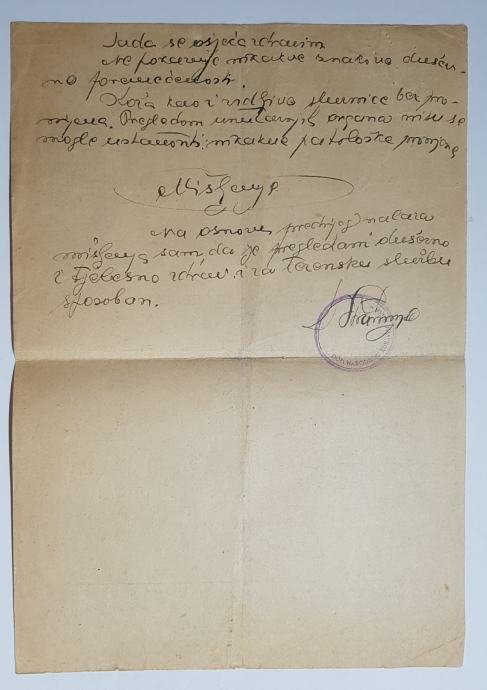 Sada se osjeća zdravim
Ne pokazuje nikakve znakove duševne
poremećenosti.
Koža kao i vidljive sluznice bez pro-
mjena. Pregledom unutarnjih organa nisu se
mogle ustanoviti nikakve patološke promjene
Mišljenje
Na osnovu prednjeg nalaza
mišljenja sam, da je pregledani duševno
i tjelesno zdrav i za terensku službu
sposoban.
DOM NARODNOG